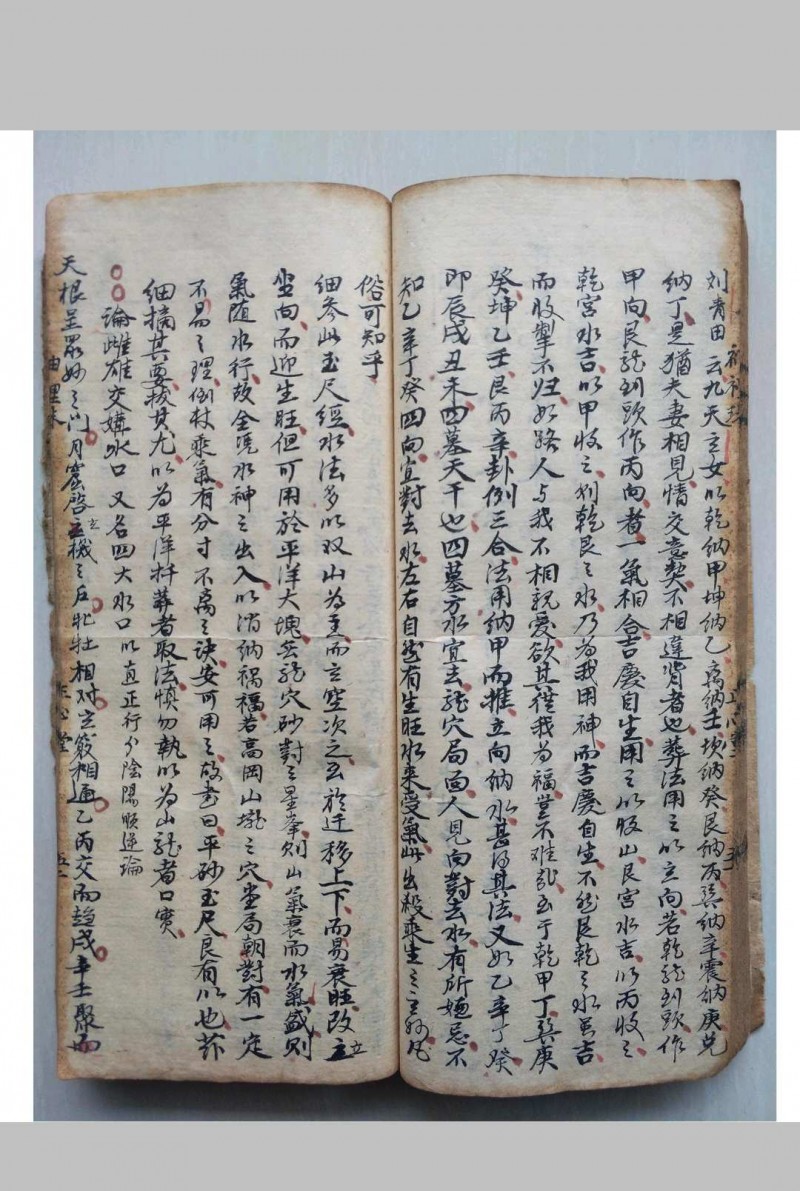 刘青田云九天玄女以乾納甲坤納乙离納壬坎納癸艮納丙巽納辛震納庚兌
納丁是猶夫妻相見情交意契不相違背者也葬法用之以立向若乾龙到頭作
甲向艮龙到頭作丙向者一氣相合吉慶自生用之以收山艮宮水吉以丙收之
乾宮水吉以甲收之则乾艮之水乃為我用神而吉慶自生不然艮乾之水虽吉
而收揧不归如路人与我不相親愛欲其從我為福豈不难哉至于乾甲丁巽庚
癸坤乙壬艮丙辛卦例三合法用納甲而推立向納水甚得其法又如乙辛丁癸
即辰戌丑未四墓天干也四墓方水宜去龙穴局面人見向對去水有所嫌忌不
知乙辛丁癸四向宜對去水左右自然有生旺水來受氣此出殺乘生之玄妙
俗可知乎
細參此玉尺經水法多以双山為主而玄空次之至於迁移上下而易衰旺改立
坐向而迎生旺但可用於平洋大塊若龙穴砂對之星峯则山氣衰而水氣盛则
氣随水行故全凭水神之出入以消納禍福若高岡山壠之穴坐局朝對有一定
不易之理倒杖乘氣有分寸不离之訣安可用之故書曰平砂玉尺良有以也茲
細摘其要拔其尤以為平洋扦葬者取法慎勿執以為山龙者口实
論雌雄交媾水口又名四大水口以直正行分陰陽順逆論
天根呈眾妙之门月窟啓玄機之户牝牡相对玄竅相通乙丙交而趋戌辛壬聚而